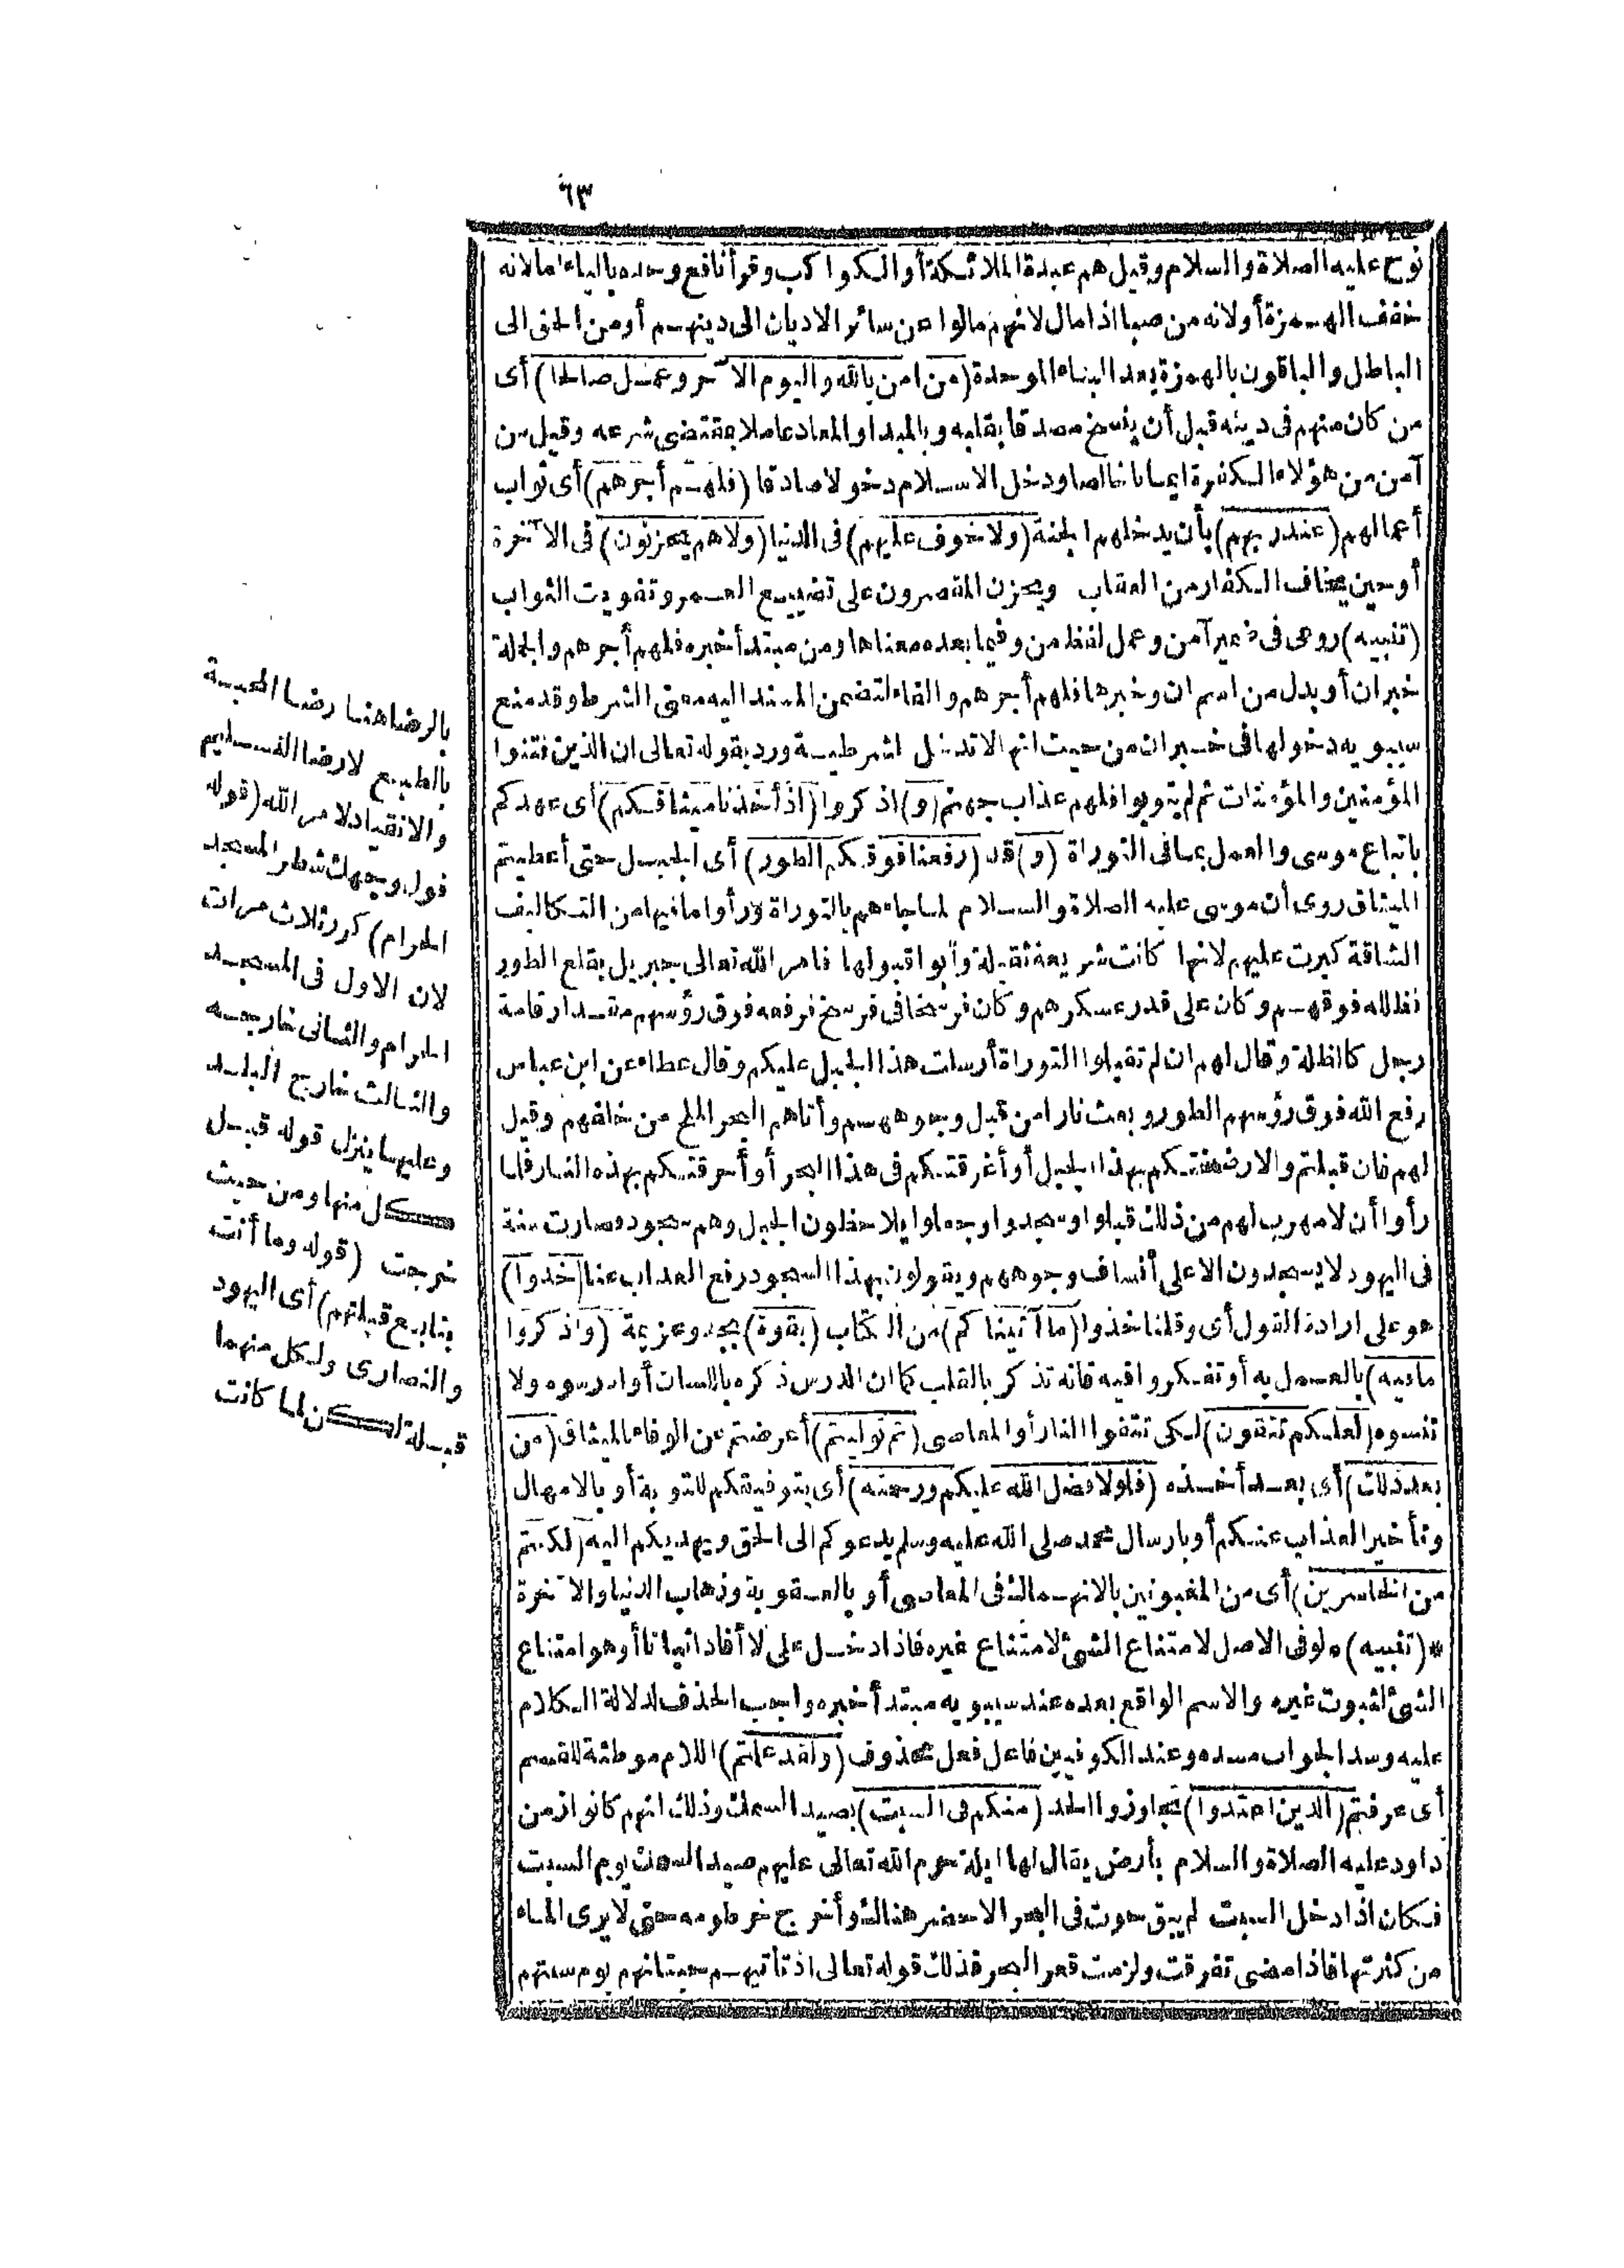 ٦٣
نوح عليه الصلاة والسلام وقيل هم عبدة الملائكة أو الكواكب وقرأ نافع وحده بالياء اما لانه
خفف الهمزة أو لانه من صبا اذا مال لانهم مالوا عن سائر الاديان الى دينهم أو من الحق الى
الباطل والباقون بالهمزة بعد الباء الموحدة (من آمن بالله واليوم الآخر وعمل صالحا) أى
من كان منهم فى دينه قبل أن ينسخ مصدقا بقلبه وبالمبدا والمعاد عاملا بمقتضى شرعه وقيل من
آمن من هؤلاء الكفرة ايمانا خالصا ودخل الاسلام دخولا صادقا (فلهم أجرهم) أى ثواب
أعمالهم (عند ربهم) بأن يدخلهم الجنة (ولا خوف عليهم) فى الدنيا (ولا هم يحزنون) فى الآخرة
أو حين يخاف الكفار من العقاب ويحزن المقصرون على تضييع العمر وتفويت الثواب
(تنبيه) روعى فى ضمير آمن وعمل لفظ من وفيما بعده معناها ومن مبتدأ خبره فلهم أجرهم والجملة
خبر ان أو بدل من اسم ان وخبرها فلهم أجرهم والفاء لتضمن المسند اليه معنى الشرط وقد منع
سيبويه دخولها فى خبر ان من حيث انها لا تدخل الشرطية ورد بقوله تعالى ان الذين فتنوا
المؤمنين والمؤمنات ثم لم يتوبوا فلهم عذاب جهنم (و) اذكروا (اذ أخذنا ميثاقكم) أى عهدكم
باتباع موسى والعمل بما فى التوراة (و) قد (رفعنا فوقكم الطور) أى الجبل حتى أعطيتم
الميثاق روى أن موسى عليه الصلاة والسلام لما جاءهم بالتوراة ورأوا ما فيها من التكاليف
الشاقة كبرت عليهم لانها كانت شريعة ثقيلة وأبوا قبولها فامر الله تعالى جبريل بقلع الطور
فظلله فوقهم وكان على قدر عسكرهم وكان فرسخا فى فرسخ فرفعه فوق رؤسهم مقدار قامة
رجل كالظلة وقال لهم ان لم تقبلوا التوراة أرسلت هذا الجبل عليكم وقال عطاء عن ابن عباس
رفع الله فوق رؤسهم الطور وبعث نارا من قبل وجوههم وأتاهم البحر الملح من خلفهم وقيل
لهم فان قبلتم والا رضختكم بهذا الجبل أو أغرقتكم فى هذا البحر أو أحرقتكم بهذه النار فلما
رأوا أن لا مهرب لهم من ذلك قبلوا وسجدوا وجعلوا يلاحظون الجبل وهم سجود وصارت سنة
فى اليهود لا يسجدون الا على أنصاف وجوههم ويقولون بهذا السجود رفع العذاب عنا (خذوا)
هو على ارادة القول أى وقلنا خذوا (ما آتيناكم) من الكتاب (بقوة) بجد وعزيمة (واذكروا
ما فيه) بالعمل به أو تفكروا فيه فانه تذكر بالقلب كما ان الدرس ذكره باللسان أو ادرسوه ولا
تنسوه (لعلكم تتقون) لكى تتقوا النار أو المعاصى (ثم توليتم) أعرضتم عن الوفاء بالميثاق (من
بعد ذلك) أى بعد أخذه (فلولا فضل الله عليكم ورحمته) أى بتوفيقكم للتوبة أو بالامهال
وتأخير العذاب عنكم أو بارسال محمد صلى الله عليه وسلم يدعوكم الى الحق ويهديكم اليه (لكنتم
من الخاسرين) أى من المغبونين بالانهماك فى المعاصى أو بالعقوبة وذهاب الدنيا والآخرة
* (تنبيه) * لو فى الاصل لامتناع الشئ لامتناع غيره فاذا دخل على لا أفاد اثباتا أو هو امتناع
الشئ لثبوت غيره والاسم الواقع بعده عند سيبويه مبتدأ خبره واجب الحذف لدلالة الكلام
عليه وسد الجواب مسده وعند الكوفيين فاعل فعل محذوف (ولقد علمتم) اللام موطئة للقسم
أى عرفتم (الذين اعتدوا) تجاوزوا الحد (منكم فى السبت) بصيد السمك وذلك انهم كانوا زمن
داود عليه الصلاة والسلام بأرض يقال لها ايلة حرم الله تعالى عليهم صيد السمك يوم السبت
فكان اذا دخل السبت لم يبق حوت فى البحر الا حضر هنالك وأخرج خرطومه حتى لا يرى الماء
من كثرتها فاذا مضى تفرقت ولزمت قعر البحر فذلك قوله تعالى اذ تأتيهم حيتانهم يوم سبتهم
بالرضا هنا رضا المحبة
بالطبع لا رضا التسليم
والانقياد لامر الله (قوله
فول وجهك شطر المسجد
الحرام) كرر ثلاث مرات
لان الاول فى المسجد
الحرام والثانى خارجه
والثالث خارج البلد
وعليها ينزل قوله قبل
كل منها ومن حيث
خرجت (قوله وما أنت
بتابع قبلتهم) أى اليهود
والنصارى ولكل منهما
قبلة لكن لما كانت